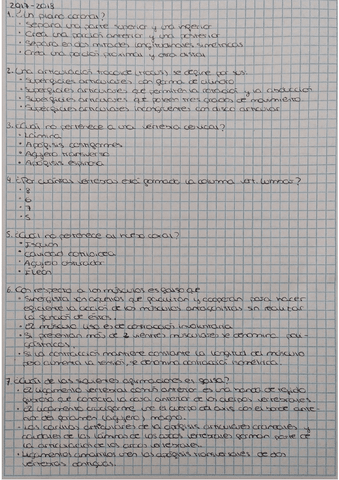 2017-2018
1. ¿Un plano coronal?
• Separa una parte superior y una inferior
• Crea una porción anterior y una posterior
• Separa en dos mitades longitudinales simétricas
• Crea una porción proximal y otra distal
2. Una articulación trocoide (trocus) se define por sus:
• Superficies articulares con forma de cilindro
• Superficies articulares que permiten la rotación y la
• Superficies articulares que poseen tres grados de movimiento
• Superficies articulares incongruentes con disco articular
3. ¿Cuál no pertenece a una vértebra cervical?
• Lámina
• Apófisis
• Agujero transverso
• Apófisis espinosa
4. ¿Por cuántas vértebras está formada la columna vert. lumbar?
• 8
• 6
• 7
• 5
5. ¿Cuál no pertenece al hueso coxal?
• Isquion
• Cavidad
• Agujero obturador
• Íleon
6. Con respecto a los músculos es falso que
• Sinergista son aquellos que facilitan y cooperan para hacer
eficiente la acción de los músculos antagonistas sin realizar
la función de éstos.
• El músculo liso es de contracción involuntaria
• Si presentan más de 2 vientres musculares se denomina
• Si la contracción mantiene constante la longitud del músculo
pero aumenta la tensión, se denomina contracción isométrica.
7. ¿Cuál de las siguientes afirmaciones es falsa?
• El ligamento vertebral común anterior es una banda de tejido
fibroso que conecta la cara anterior de los cuerpos vertebrales.
• El ligamento cruciforme une el cuerpo del axis con el borde
del foramen (agujero) magno.
• Las carillas articulares de la apófisis articulares craneales y
caudales de las láminas de los arcos vertebrales forman parte de
la articulación de los arcos vertebrales.
• Ligamentos amarillos unen las apófisis transversales de dos
vértebras contiguas.